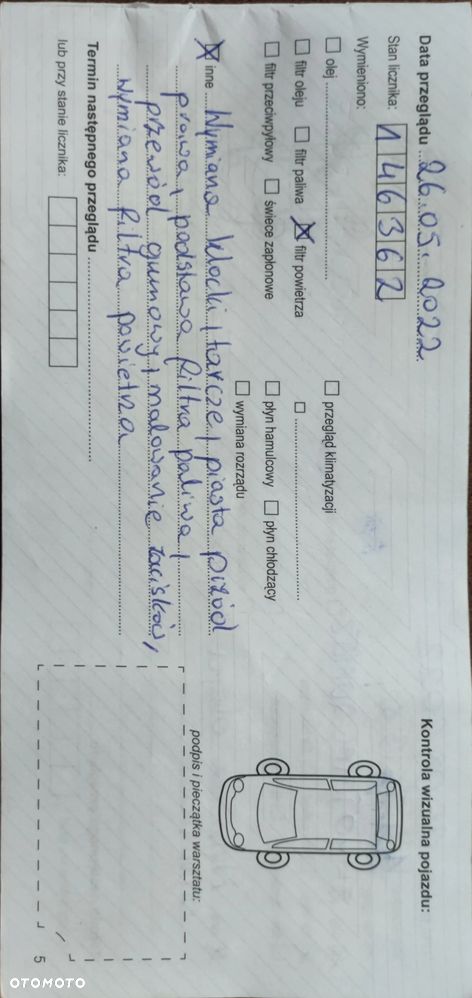 Data przeglądu ... 26.05.2022
Stan licznika: 146362
Kontrola wizualna pojazdu:
Wymieniono:
olej
przegląd klimatyzacji
filtr oleju filtr paliwa filtr powietrza
filtr przeciwpyłowy świece zapłonowe
płyn hamulcowy płyn chłodzący
wymiana rozrządu
inne ... Wymiana klocki, tarcze, piasta przód
prawa, podstawa filtra paliwa,
przewód gumowy, malowanie zacisków,
wymiana filtra powietrza
Termin następnego przeglądu
lub przy stanie licznika:
podpis i pieczątka warsztatu:
5
OTOMOTO